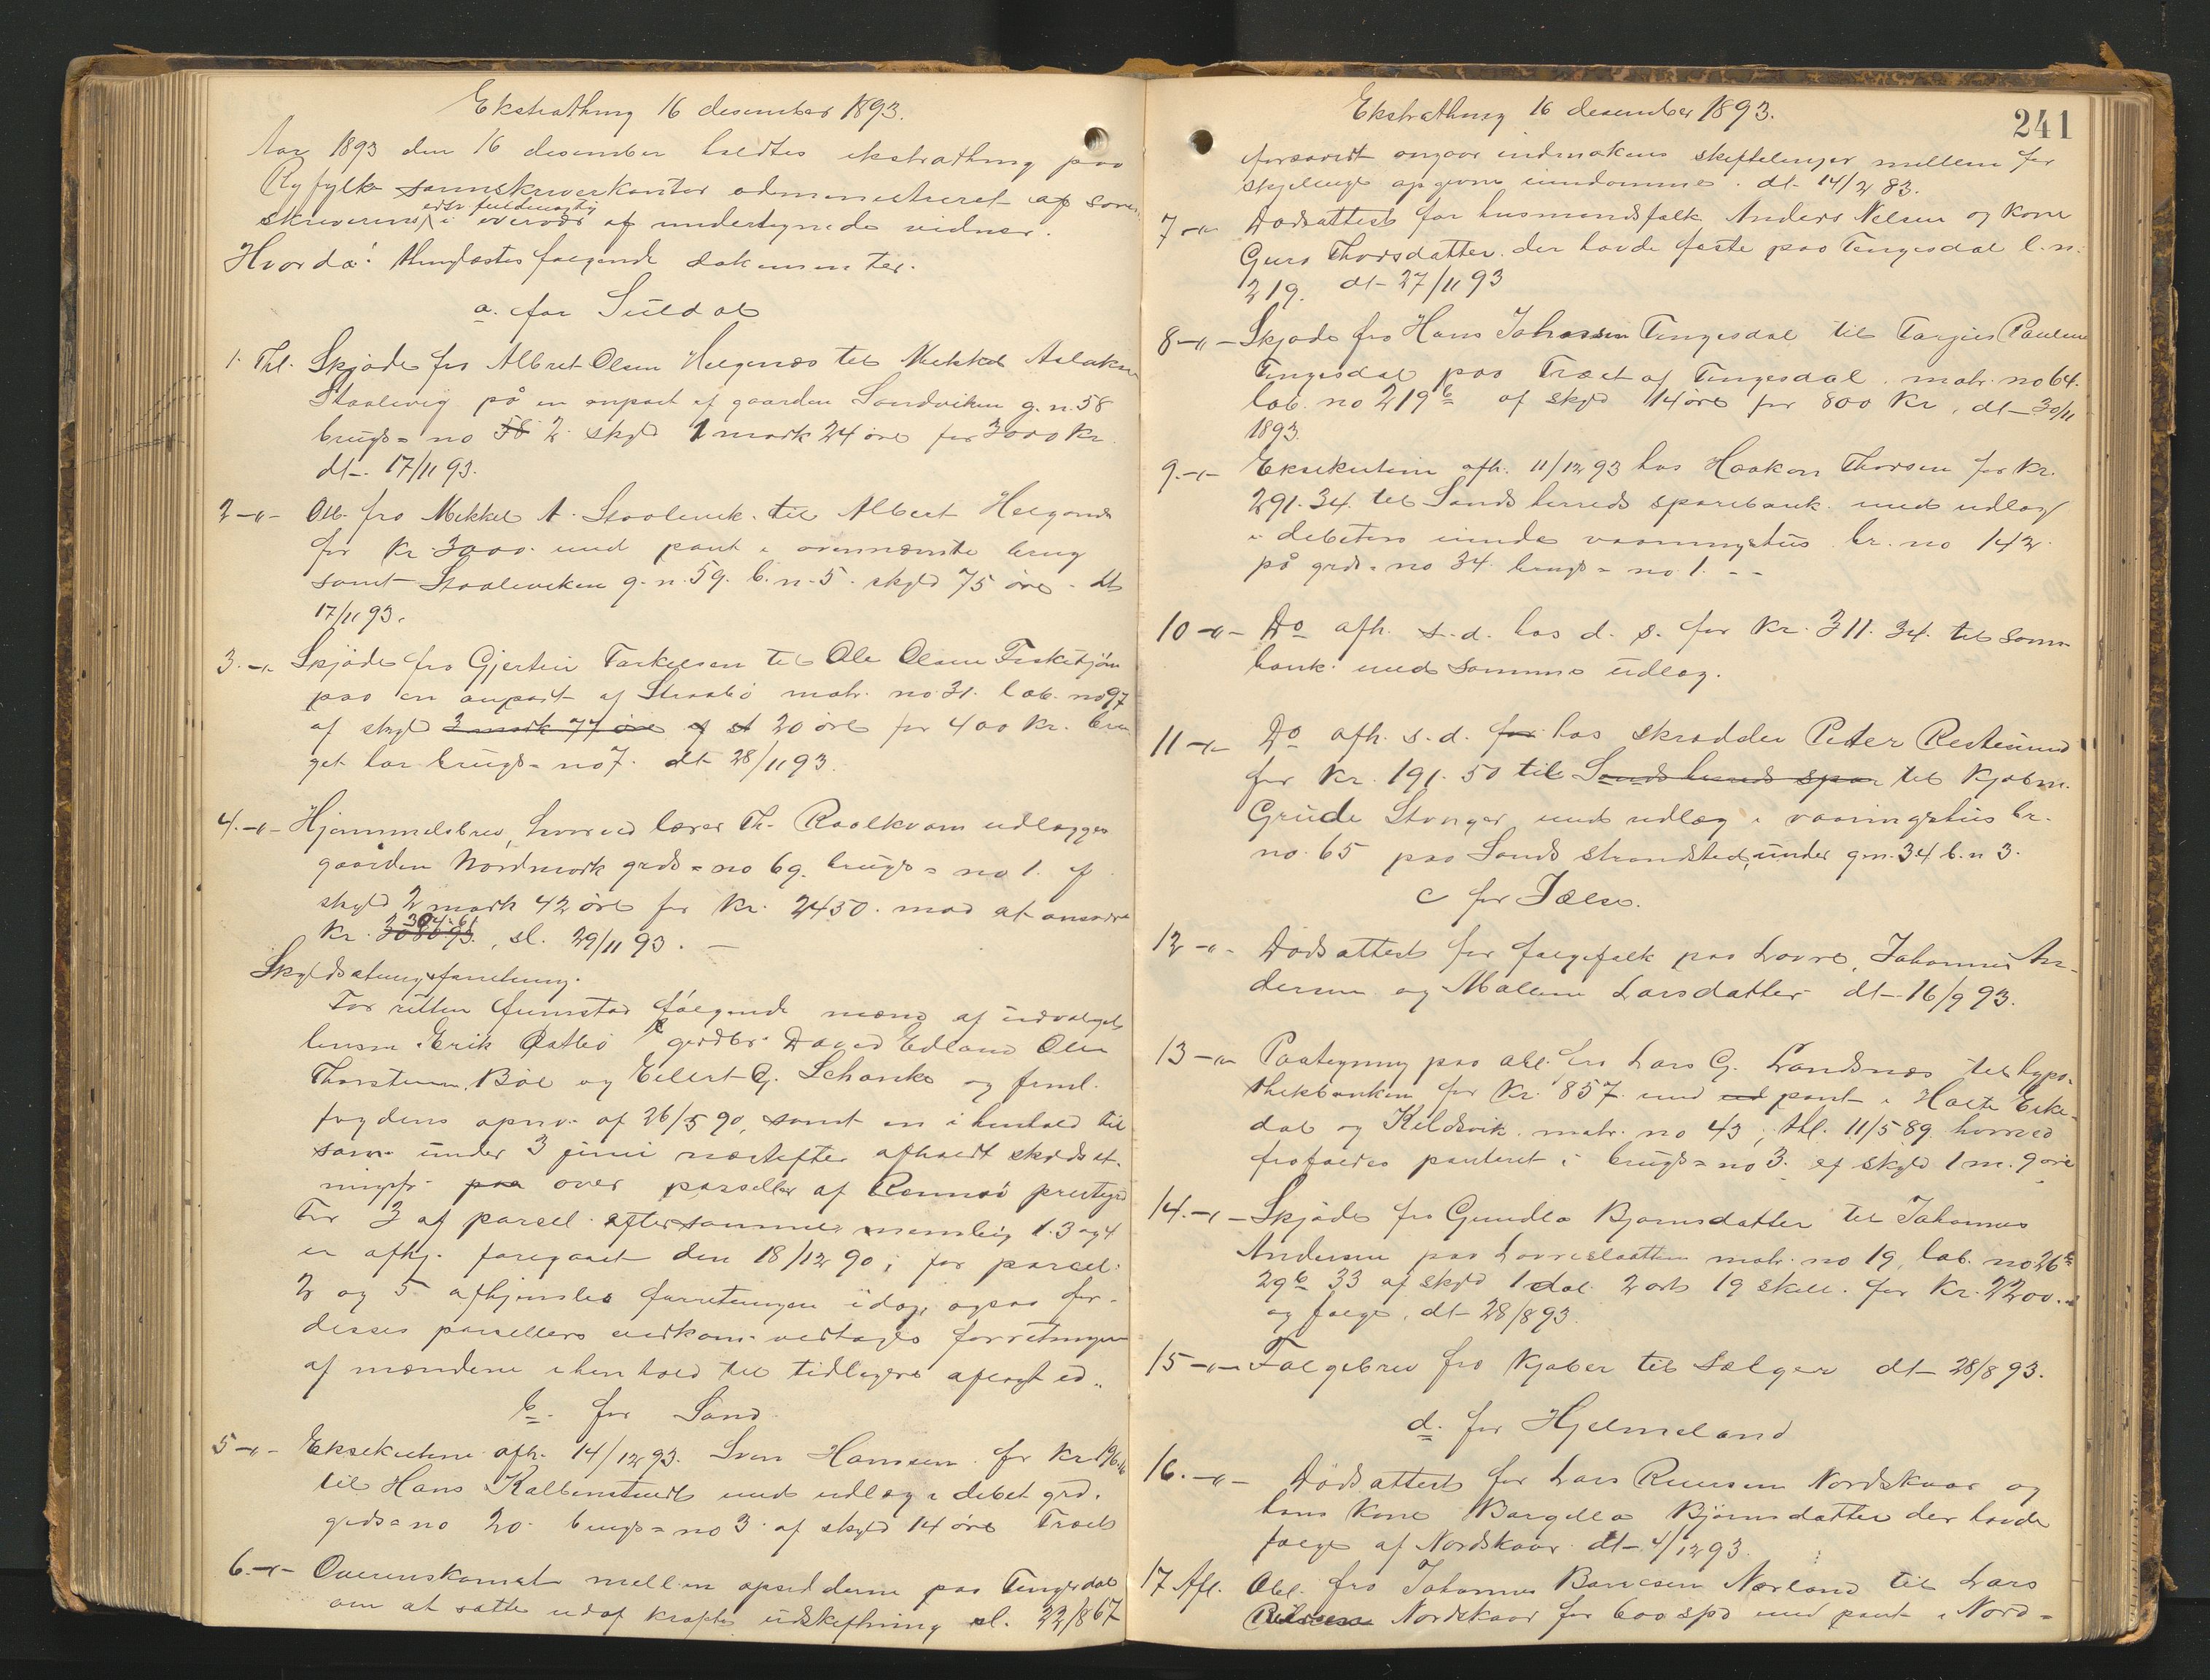 Ekstrathing 16 desember 1893.
Aar 1893 den 16 desember holdtes ekstrathing paa
Ryfylke sorenskriverkontor administreret af soren-
edsv. fuldmægtig
skriverens i overvær af undertegnede vidner.
Hvorda: thinglæstes følgende dokumenter.
a. for Suldal
1. Thl. Skjøde fra Albret Olsen Helgenæs til Mikkel Aslaksen
Staalevig på en anpart af gaarden Sandviken g.n. 58
brugs=no 58 2. skyld 1 mark 24 øre for 3000 kr.
dt. 17/11 93.
2 -"- Obl. fra Mikkel A. Staalevik til Albert Helganæs
for kr. 3000. med pant i ovennævnte brug
samt Staaleviken g.n. 59. b.n. 5. skyld 75 øre. dt
17/11 93.
3. -"- Skjøde fra Gjertin Tarkelsen til Ole Olsen Fisketjøn
paa en anpart af Straabø matr. no 31. løb. no 97
af skyld 3 mark 77 øre af st 20 øre for 400 kr. bru
get har brugs=no 7. dt 28/11 93.
4. -"- Hjemmelsbrev, hvorved lærer Th. Raalkvam udlægges
gaarden Nordmork grds=no 69. brugs=no 1. af
skyld 2 mark 42 øre for kr. 2450. mod at ansvare
304.61
kr. 3080.93., sl. 29/11 93. —
Skyldsætningsforretning.
For retten fremstod følgende mænd af udvalget
lensm. Erik Qatbø grdbr. David Edland Olen
Thorstensen Bøe og Eilert G. Schanke og freml.
fogdens opnv. af 26/5 90, samt en i henhold til
samme under 3 juni næstefter afholdt skyldsæt-
ningsfr. paa over parseller af Rennesø prestegrd
For 3 af parsel. efter samme nemlig 1. 3 og 4
er afhj. foregaaet den 18/12 90; for parsel.
2 og 5 afhjemles forretningen idag, ogsaa for
disses parsellers vedkom. vedtages forretningen
af mændene i henhold til tidligere aflagt ed.
b. for Sand
5 -"- Eksekution afh. 14/12 93. Sven Hansen for kr. 196.16
til Hans Kaltenstuedt med udlæg i debet. grd.
grds=no 20. brugs=no 3. af skyld 14 øre Træet
6. -"- Overenskomst mellem opsidderne paa Tengesdal
om at sætte udaf kraft udskiftning sl. 22/8 67
Ekstrathing 16 desember 1893.
241
forsavidt angaar indmarkens skiftelinjer mellem for
skjellige opgivne eiendomme. dt. 14/2 83.
7 -"- Dødsattest for husmandsfolk Anders Nelsen og kone
Guro Thorsdatter. der havde fæste paa Tengesdal l.n.
219. dt 27/11 93
8 -"- Skjøde fra Hans Johansen Tengesdal til Tarjeis Paulsen
Tengesdal paa Træet af Tengesdal. matr. no 64.
løb. no 219b af skyld 14 øre for 800 kr, dt 30/11
1893.
9. -"- Eksekution afh. 11/12 93 hos Haakon Thorsen for kr.
291.34. til Sands herreds sparebank med udlæg
i debitors eiende vaaningshus br. no 142.
på grds=no 34. brugs=no 1. - -
10 -"- Do afh. s.d. hos d.s. for kr. 311.34. til samme
bank med samme udlæg.
11 -"- Do afh. s.d. for hos skrædder Peter Restemend
for kr. 191.50 til Sands herreds spar til kjøbm.
Grude Stvnger med udlæg i vaaningshus br.
no 65 paa Sands strandsted, under g.n. 34 b.n 3.
c for Jælse.
12 -"- Dødsattest for følgefolk paa Lovre, Johannes An-
dersen og Malena Larsdatter dt. 16/9 93.
13 -"- Paategning paa obl. fra Lars G. Landsnæs til hypo-
thekbanken for kr. 857. med ud pant i Hølte Eike-
dal og Kildevik. matr. no 43; thl. 11/5 89 hvorved
frafaldes panteret i brugs=no 3. af skyld 1 m. 9 øre
14. -"- Skjøde fra Gundla Bjørnsdatter til Johannes
Andersen paa Lovreslaatten matr. no 19, løb. no 26b
29b 33 af skyld 1 dal. 2 ort 19 skill. for kr. 2200.
og følge. dt 28/8 93.
15 -"- Følgebrev fra kjøber til sælger dt 28/8 93.
d. for Hjelmeland
16. -"- Dødsattest for Lars Reiersen Nordskaar og
hans kone Bargella Bjørnsdatter der havde
følge af Nordskaar dt 4/12 93.
17 Afl. Obl. fra Johannes Baardsen Nørland til Lars
Nordskaar for 600 spd med pant i Nord=